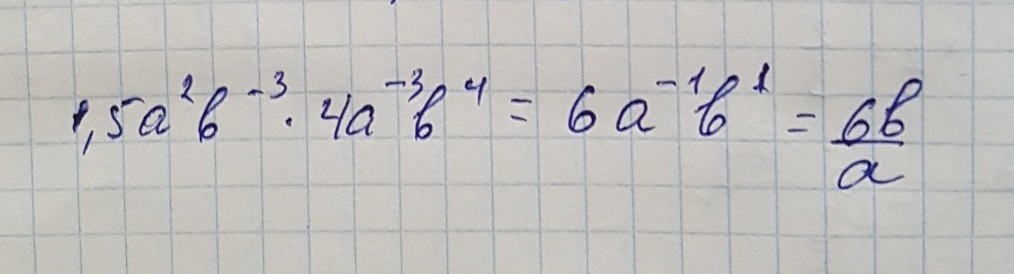 1,5a²b⁻³ · 4a⁻³b⁴ = 6a⁻¹b¹ = 6b/a